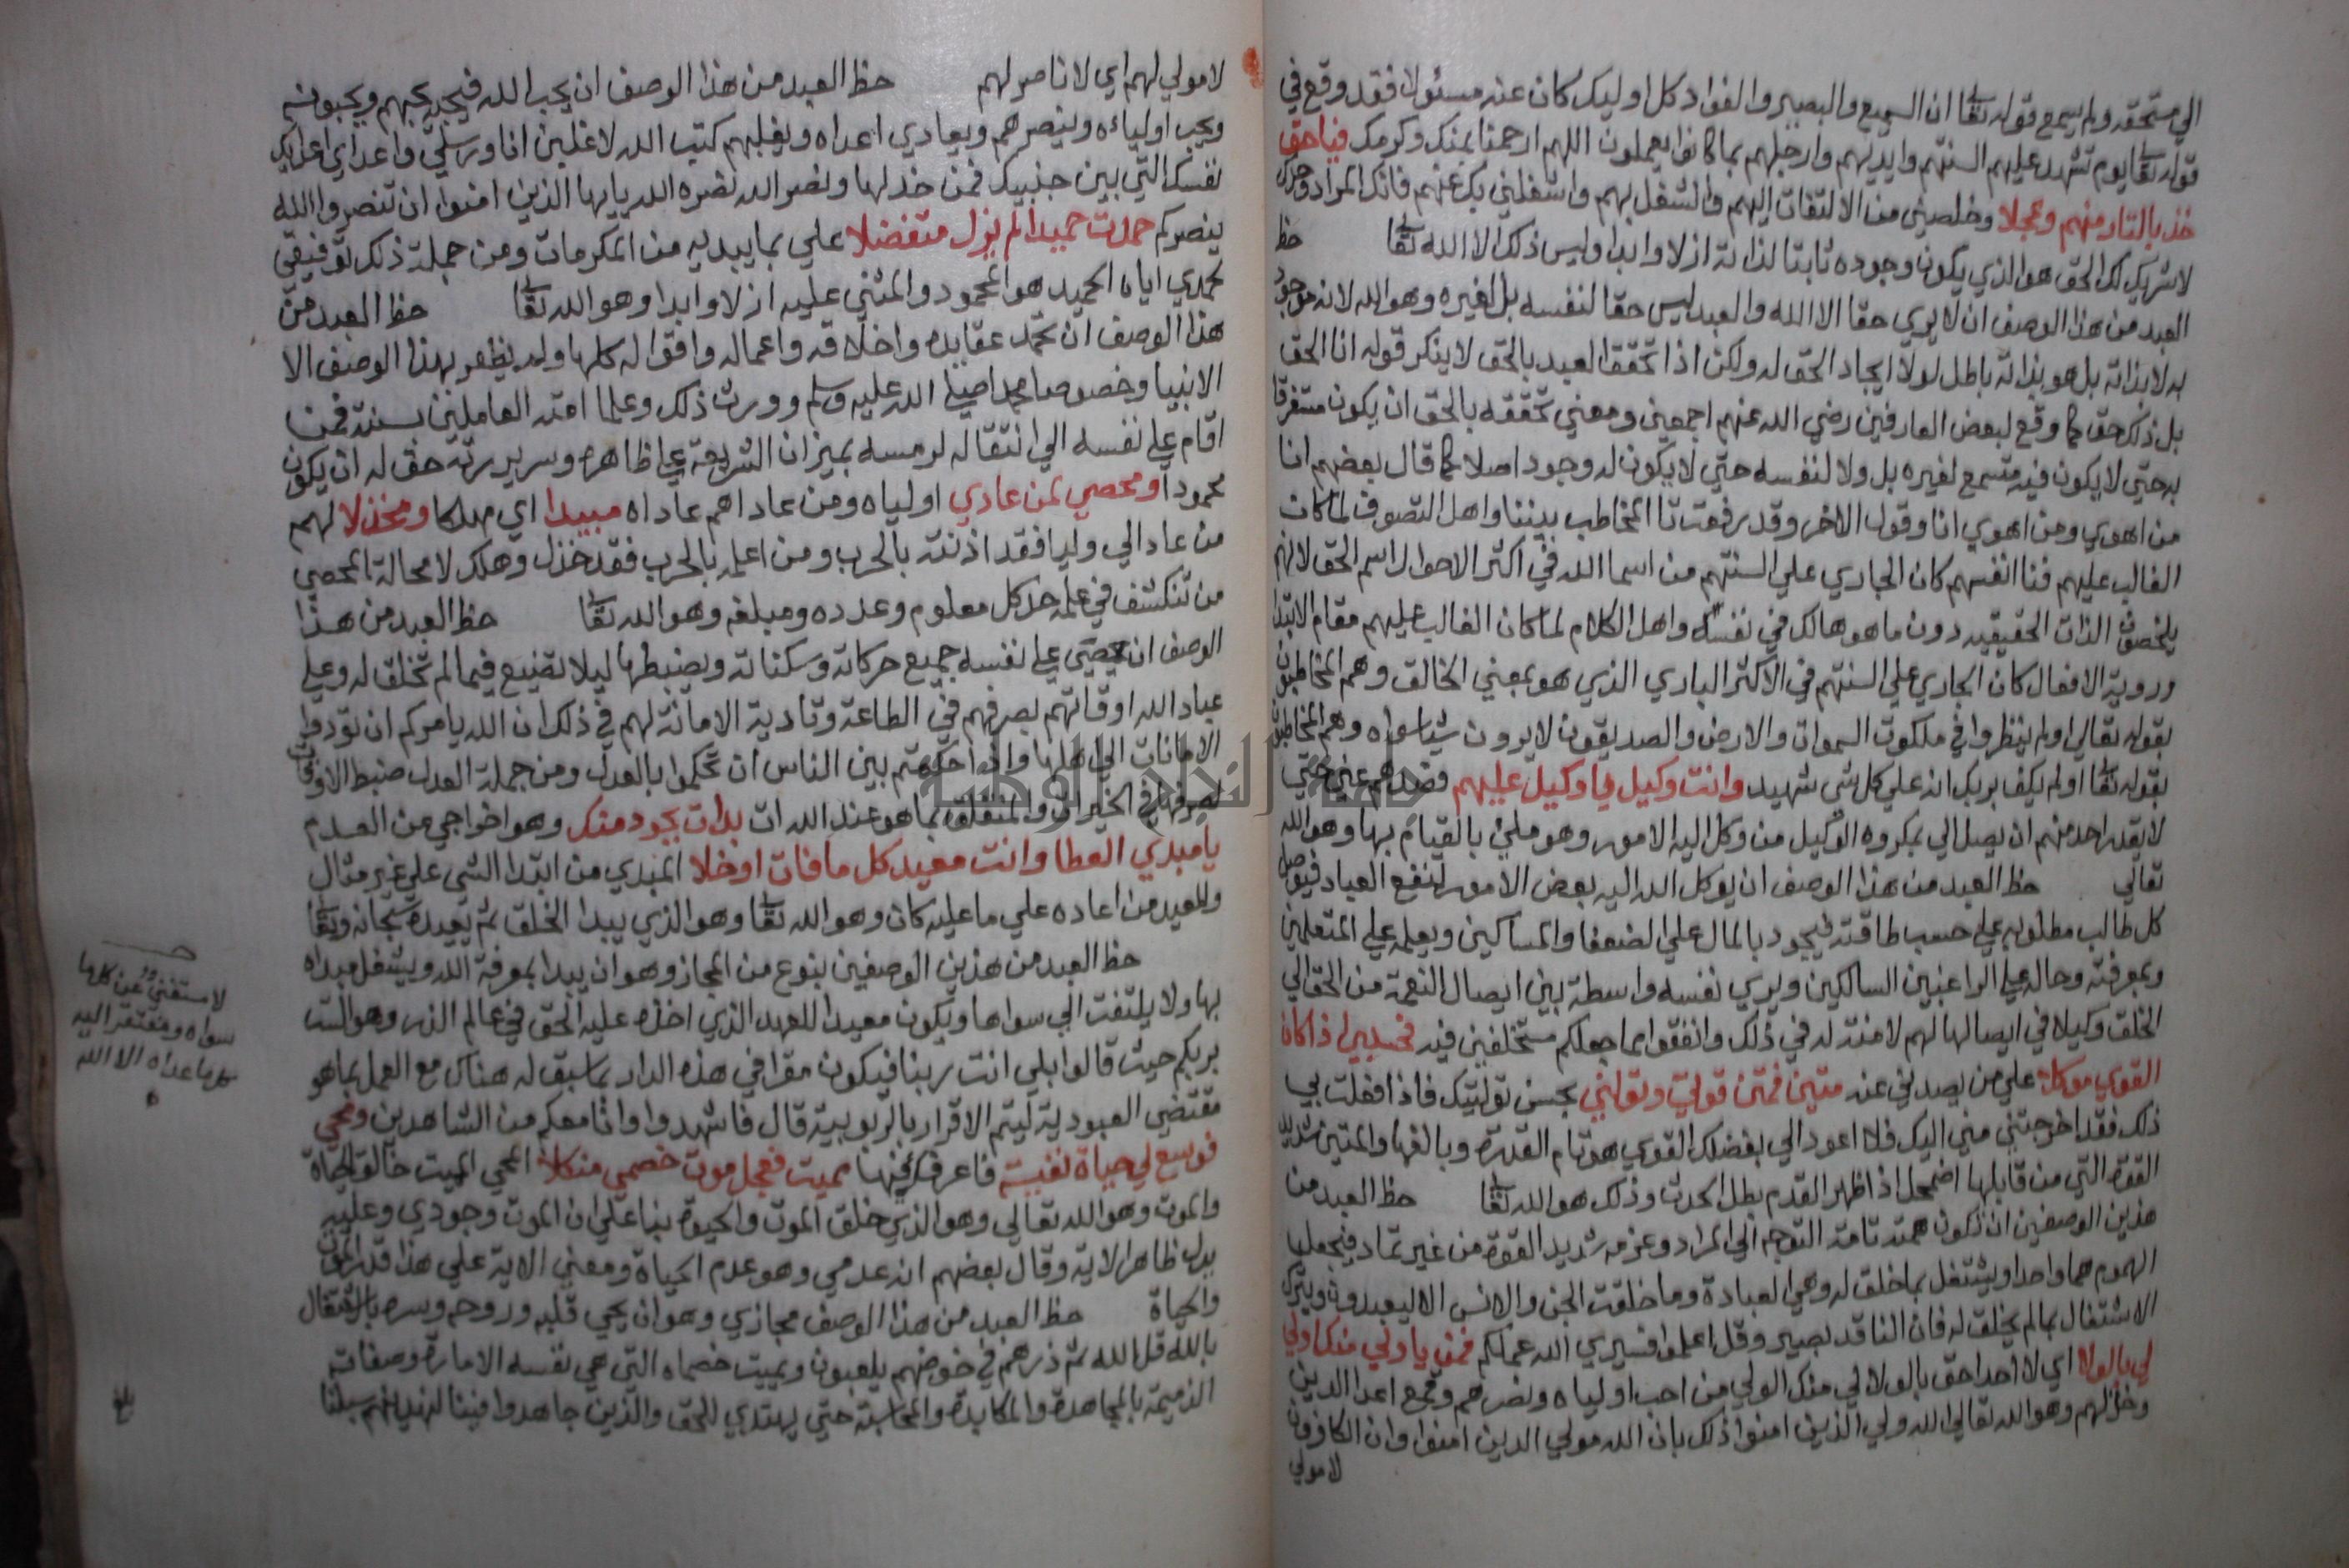 الي مستحقه ولم يسمع قوله تعا ان السميع والبصير والفواد كل اوليك كان عنه مسئولا فقد وقع في
قوله تعا يوم تشهد عليهم السنتهم وايديهم وارجلهم بما كانوا يعملون اللهم ارحمنا بمنك وكرمك فيا حق
خذ بالثار منهم وعجلا وخلصني من الالتفات اليهم والشغل بهم واشغلني بك عنهم فانك المراد وحدك
لا شريك لك الحق هو الذي يكون وجوده ثابتا لذاته ازلا وابدا وليس ذلك الا الله تعا حظ
العبد من هذا الوصف ان لا يري حقا الا الله والعبد ليس حقا لنفسه بل لغيره وهو الله لانه موجود
به لا بذاته بل هو بذاته باطل لولا ايجاد الحق له ولكن اذا تحقق العبد بالحق لا ينكر قوله انا الحق
بل ذلك حق كما وقع لبعض العارفين رضي الله عنهم اجمعين ومعني تحققه بالحق ان يكون مستغرقا
به حتي لا يكون فيه متسع لغيره بل ولا لنفسه حتي لا يكون له وجود اصلا كما قال بعضهم انا
من اهوي ومن اهوي انا وقول الاخر وقد رفعت تا المخاطب بيننا واهل التصوف لما كان
الغالب عليهم فنا انفسهم كان الجاري علي السنتهم من اسما الله في اكثر الاحوال اسم الحق لانهم
يلحضون الذات الحقيقيه دون ما هو هالك في نفسه واهل الكلام لما كان الغالب عليهم مقام الابتدا
ورويه الافعال كان الجاري علي السنتهم في الاكثر الباري الذي هو بمعني الخالق وهم المخاطبون
بقوله تعالي اولم ينظروا في ملكوت السموات والارض والصديقون لا يرون شيا سواه وهم المخاطبون
بقوله تعا اولم يكف بربك انه علي كل شي شهيد وانت وكيل يا وكيل عليهم فصدهم عني حتي
لا يقدر احد منهم ان يصل الي بمكروه الوكيل من وكل اليه الامور وهو ملئ بالقيام بها وهو الله
تعالي حظ العبد من هذا الوصف ان يوكل الله اليه بعض الامور لنفع العباد فيوصل
كل طالب مطلوبه علي حسب طاقته فيجود بالمال علي الضعفا والمساكين وبعلمه علي المتعلمين
وبمعرفته وحاله علي الراغبين السالكين ويري نفسه واسطة بين ايصال النعمة من الحق الي
الخلق وكيلا في ايصالها لهم لا منة له في ذلك وانفقوا مما جعلكم مستخلفين فيه فحسبي اذا كان
القوي موكلا علي من يصدني عنه متين فمتن قوتي وتولني بحسن توليتك فاذا فعلت بي
ذلك فقد اخرجتني مني اليك فلا اعود الي بفضلك القوي هو تام القدرة وبالغها والمتين شديد
القوة التي من قابلها اضمحل اذا ظهر القدم بطل الحدث وذلك هو الله تعا حظ العبد من
هذين الوصفين ان تكون همته تامة التوجه الي المراد وعزمه شديد القوة من غير تماد فيجعلها
الهموم هما واحدا ويشتغل بما خلق له وهي العبادة وما خلقت الجن والانس الا ليعبدون ويترك
الاشتغال بما لم يخلق له فان الناقد بصير وقل اعملوا فسيري الله عملكم فمن يا ولي منك اولي
لي بالولا اي لا احد احق بالولا لي منك الولي من احب اولياه ونصرهم وقمع اعدا الدين
وخذلهم وهو الله تعالي الله ولي الذين امنوا ذلك بان الله مولي الذين امنوا وان الكافرين
لا مولي
لا مولي لهم اي لا ناصر لهم حظ العبد من هذا الوصف ان يحب الله فيحبه يحبهم ويحبونه
ويحب اولياءه وينصرهم ويعادي اعداه ويغلبهم كتب الله لاغلبن انا ورسلي واعدي اعدايك
نفسك التي بين جنبيك فمن خذلها ونصر الله نصره الله يايها الذين امنوا ان تنصروا الله
ينصركم حمدت حميدا لم يزل متفضلا علي بما يبديه من المكرمات ومن جملة ذلك توفيقي
لحمدي اياه الحميد هو المحمود والمثني عليه ازلا وابدا وهو الله تعا حظ العبد من
هذا الوصف ان تحمد عقايده واخلاقه واعماله واقواله كلها ولم يظفر بهذا الوصف الا
الانبيا وخصوصا محمدا صلي الله عليه وسلم وورث ذلك وعلما امته العاملين بسنته فمن
اقام علي نفسه الي انتقاله لرمسه بميزان الشريعة علي ظاهره وسريرته حق له ان يكون
محمودا ومحصي لمن عادي اولياه ومن عاداهم عاداه مبيدا اي مهلكا ومخذلا لهم
من عادا لي وليا فقد اذنته بالحرب ومن اعلمه بالحرب فقد خذل وهلك لا محالة المحصي
من تنكشف في علمه حد كل معلوم وعدده ومبلغه وهو الله تعا حظ العبد من هذا
الوصف ان يحصي علي نفسه جميع حركاته وسكناته ويضبطها ليلا تضيع فيما لم تخلق له وعلي
عباد الله اوقاتهم بصرفهم في الطاعة وتادية الامانة لهم في ذلك ان الله يامركم ان تودوا
الامانات الي اهلها واذا حكمتم بين الناس ان تحكموا بالعدل ومن جملة العدل ضبط الاوقات
بصرفها في الخيرات والمتعلق بما هو عند الله ات بدات بجود منك وهو اخراجي من العدم
يا مبدي العطا وانت معيد كل ما فات اوخلا المبدي من ابتدا الشي علي غير مثال
والمعيد من اعاده علي ما عليه كان وهو الله تعا وهو الذي يبدا الخلق ثم يعيده سبحانه وتعا
حظ العبد من هذين الوصفين بنوع من المجاز وهو ان يبدا بمعرفة الله ويشغل مبداه
بها ولا يلتفت الي سواها ويكون معيدا للعهد الذي اخذه عليه الحق في عالم الذر وهو الست
بربكم حيث قالوا بلي انت ربنا فيكون مقرا في هذه الدار بما سبق له هناك مع العمل بما هو
مقتضي العبودية ليتم الاقرار بالربوبية قال فاشهدوا وانا معكم من الشاهدين ومحي
فوسع لي حياة نفيسة فاعرفك فيها مميت فعجل موت خصمي منكلا المحي المميت خالق الحياة
والموت وهو الله تعالي وهو الذي خلق الموت والحيوة بنا علي ان الموت وجودي وعليه
يدل ظاهر الاية وقال بعضهم انه عدمي وهو عدم الحياة ومعني الاية علي هذا قدر الموت
والحياة حظ العبد من هذا الوصف مجازي وهو ان يحي قلبه وروحه وسره بالاشتغال
بالله قل الله ثم ذرهم في خوضهم يلعبون ويميت خصماه التي هي نفسه الامارة وصفاته
الذميمة بالمجاهدة والمكابدة والمحاسبة حتي يهتدي للحق والذين جاهدوا فينا لنهدينهم سبلنا
لا مستغني عن كلها
سواه ومفتقر اليه
كل ما عداه الا الله
بلغ